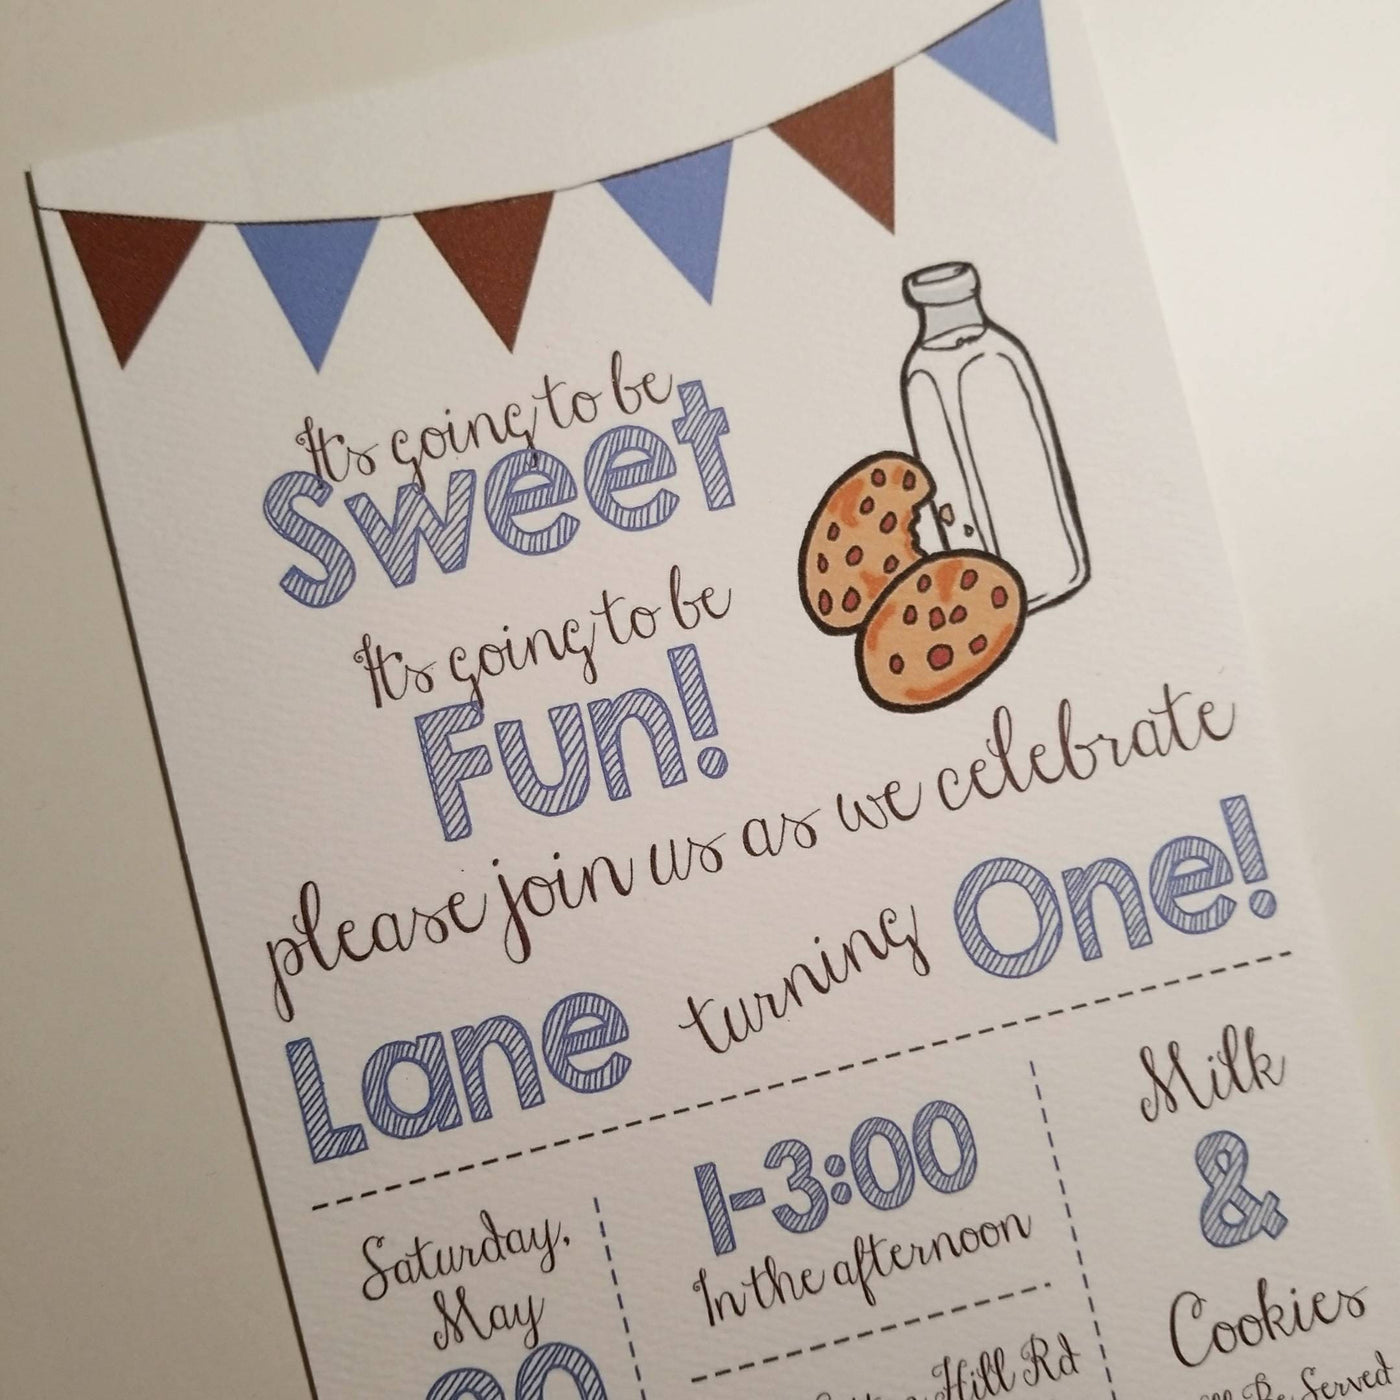 It's going to be
Sweet
It's going to be
Fun!
please join us as we celebrate
Lane turning One!
Saturday,
May
1-3:00
In the afternoon
Hill Rd
Milk
&
Cookies
Be Served